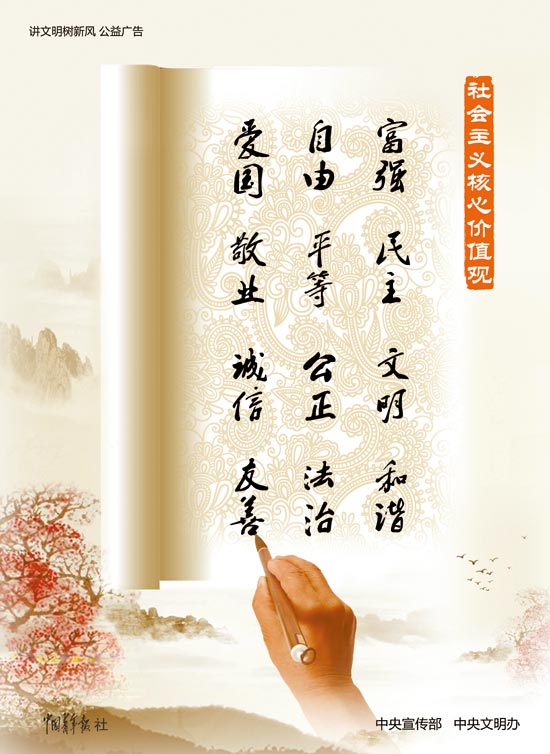 讲文明树新风 公益广告
社会主义核心价值观
富强 民主 文明 和谐
自由 平等 公正 法治
爱国 敬业 诚信 友善
中国青年报社
中央宣传部 中央文明办